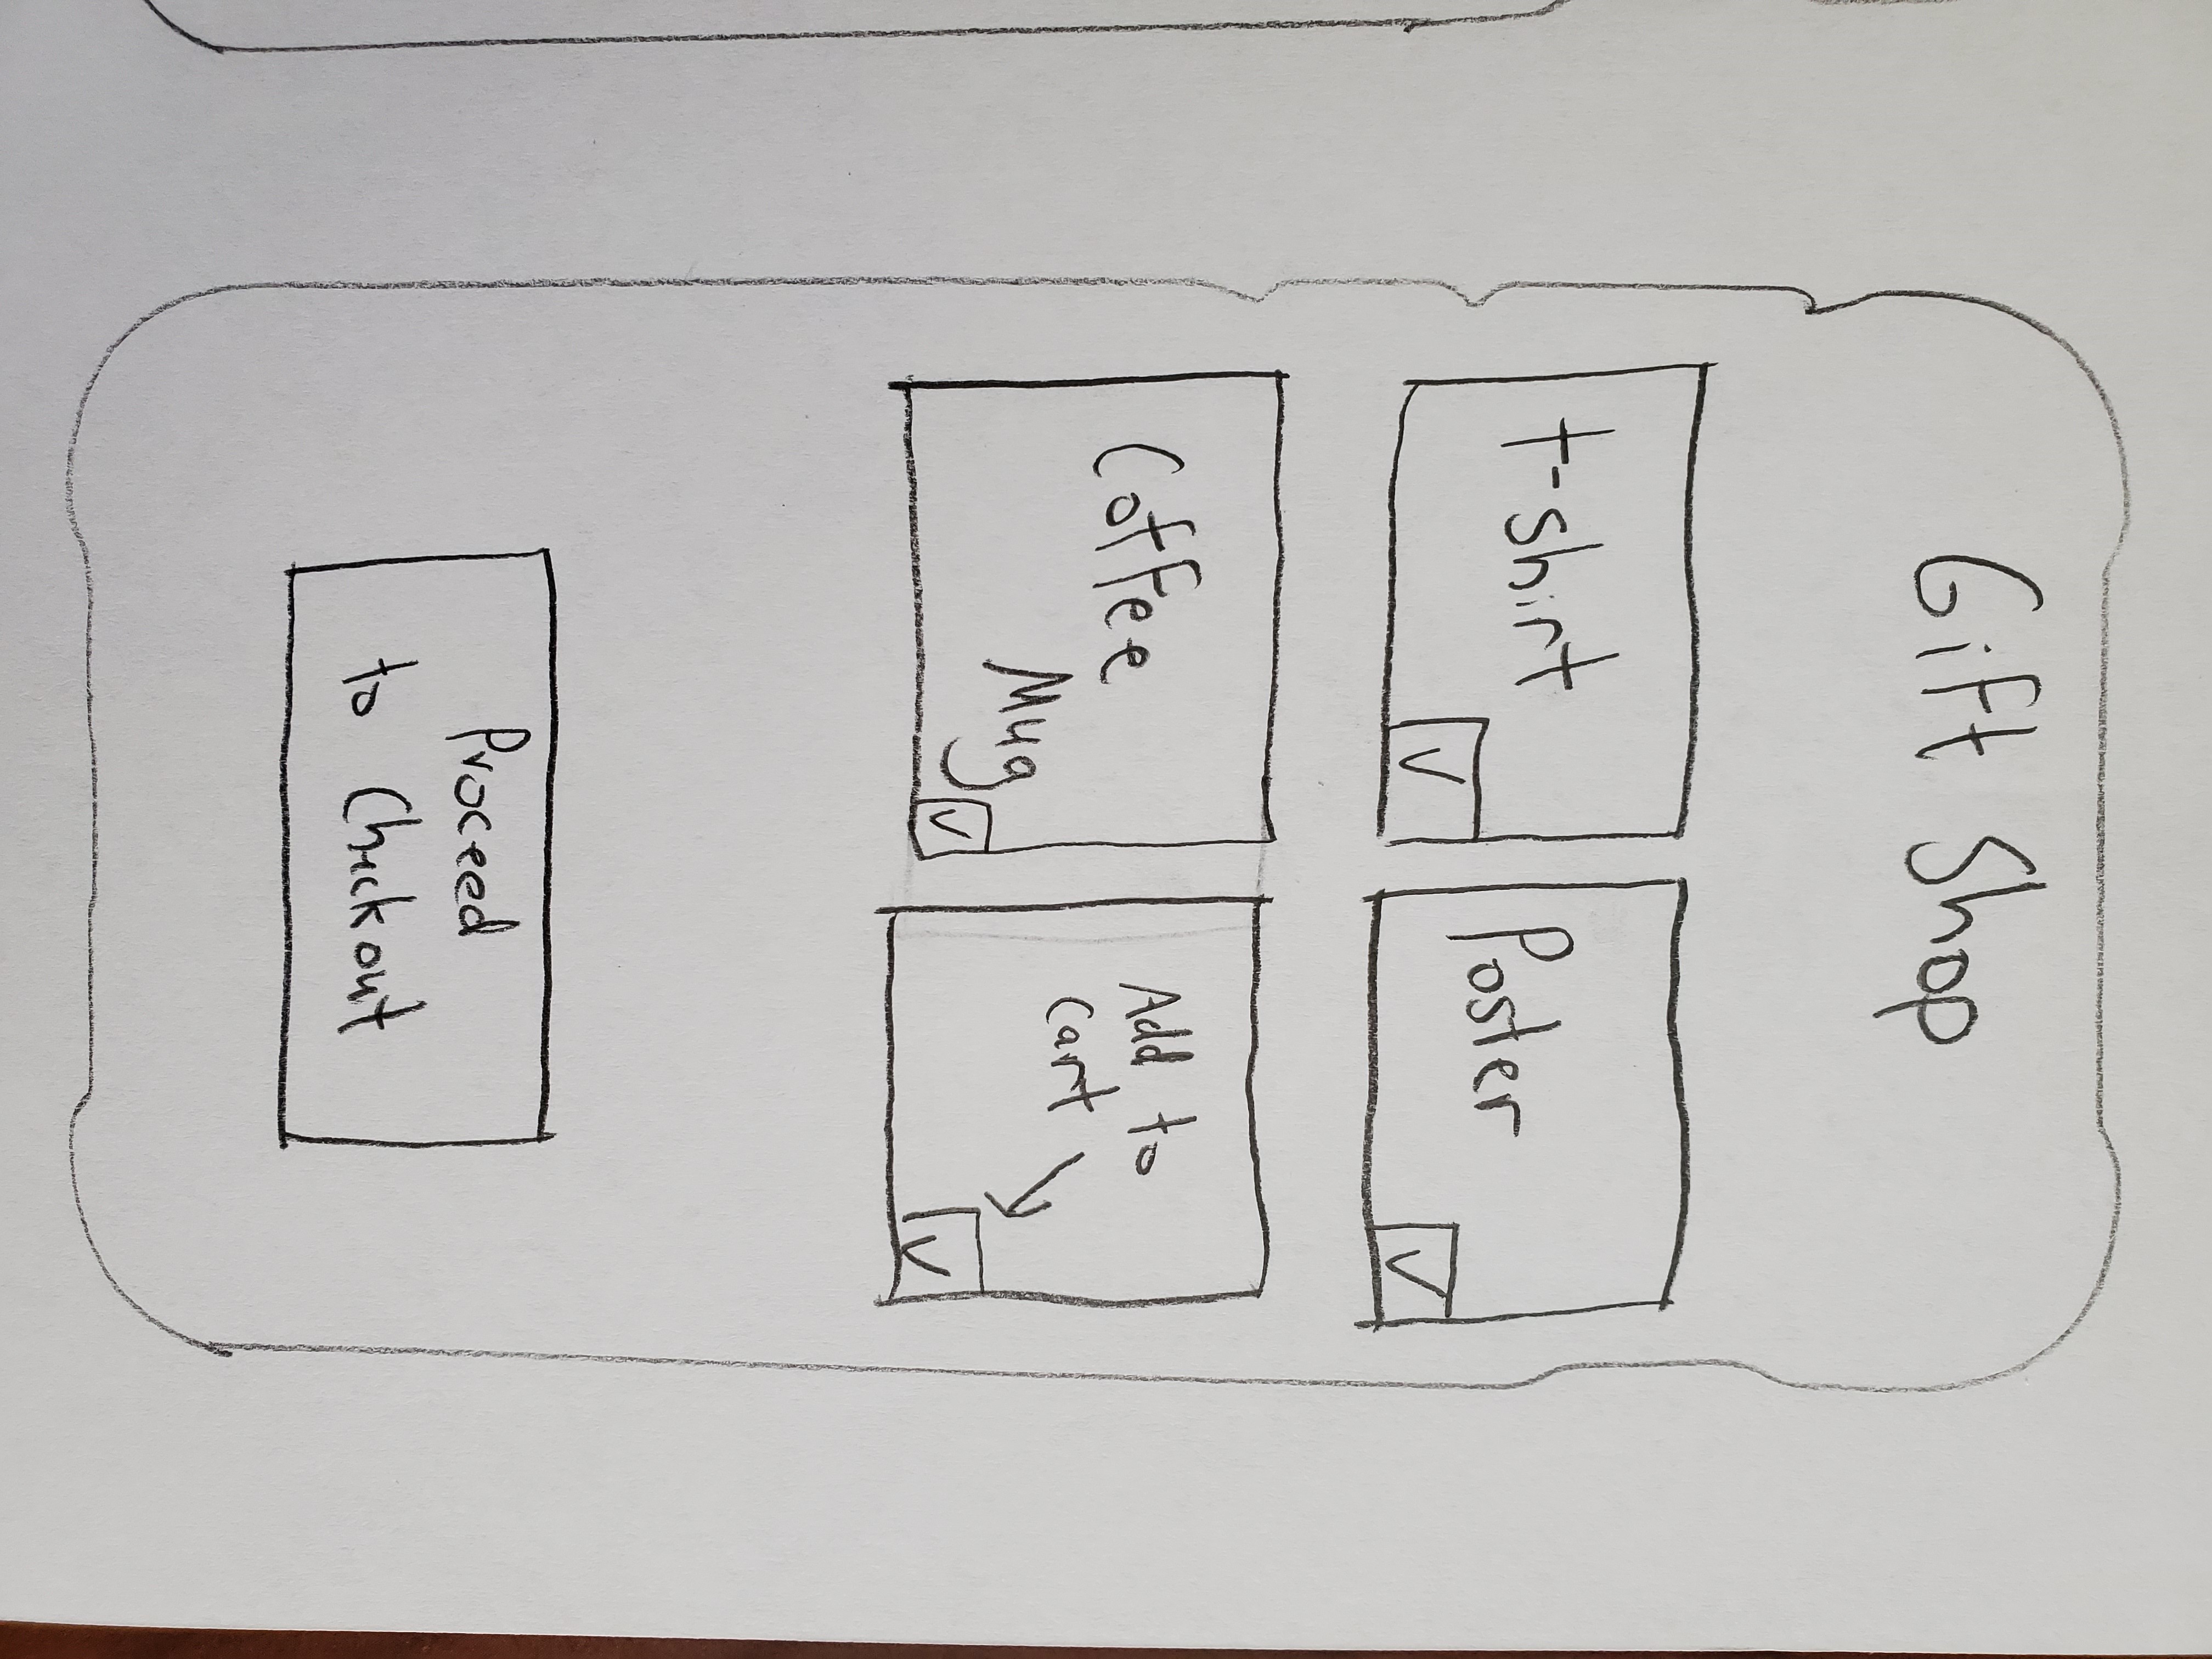 Gift Shop
T-Shirt
V
Poster
V
Coffee
Mug
V
Add to
Cart
V
Proceed
to Checkout